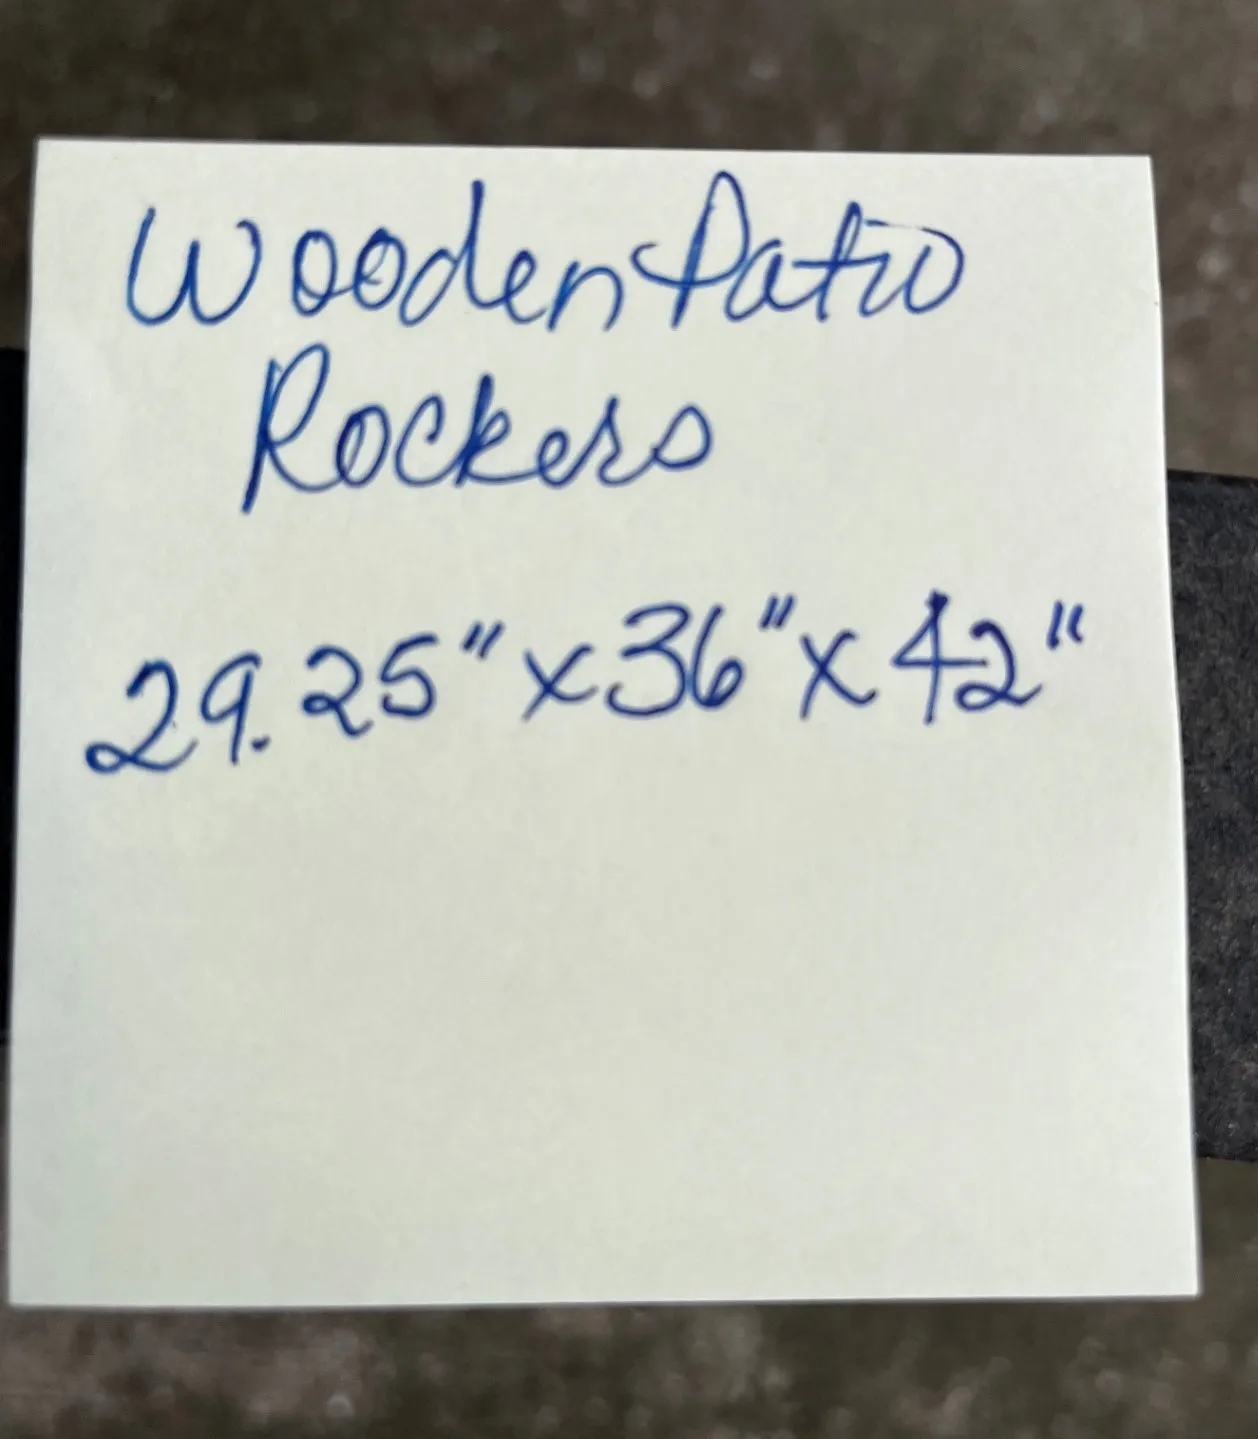 Wooden Patio
Rockers
29.25" x 36" x 42"